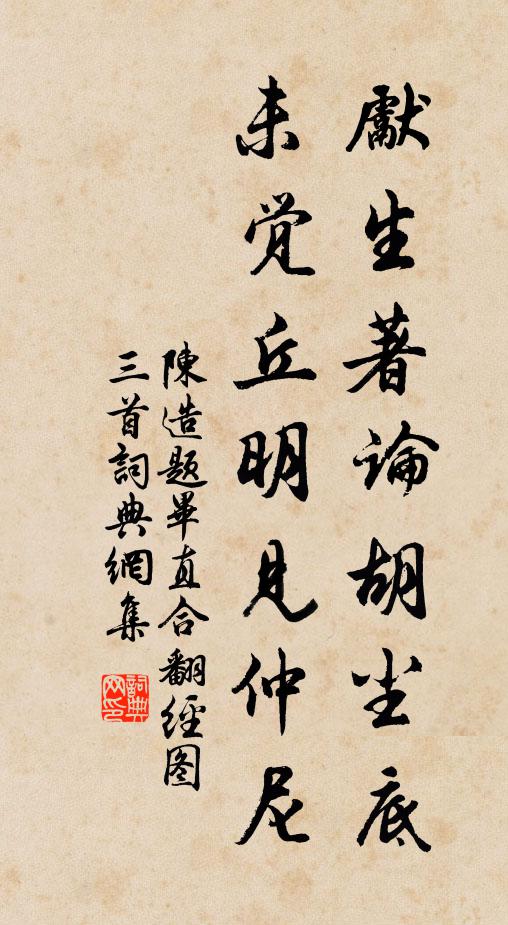 獻生著論胡尘底
未觉丘明見仲尼
陳造題畢直合翻經图
三首詞典網集
詞典網印